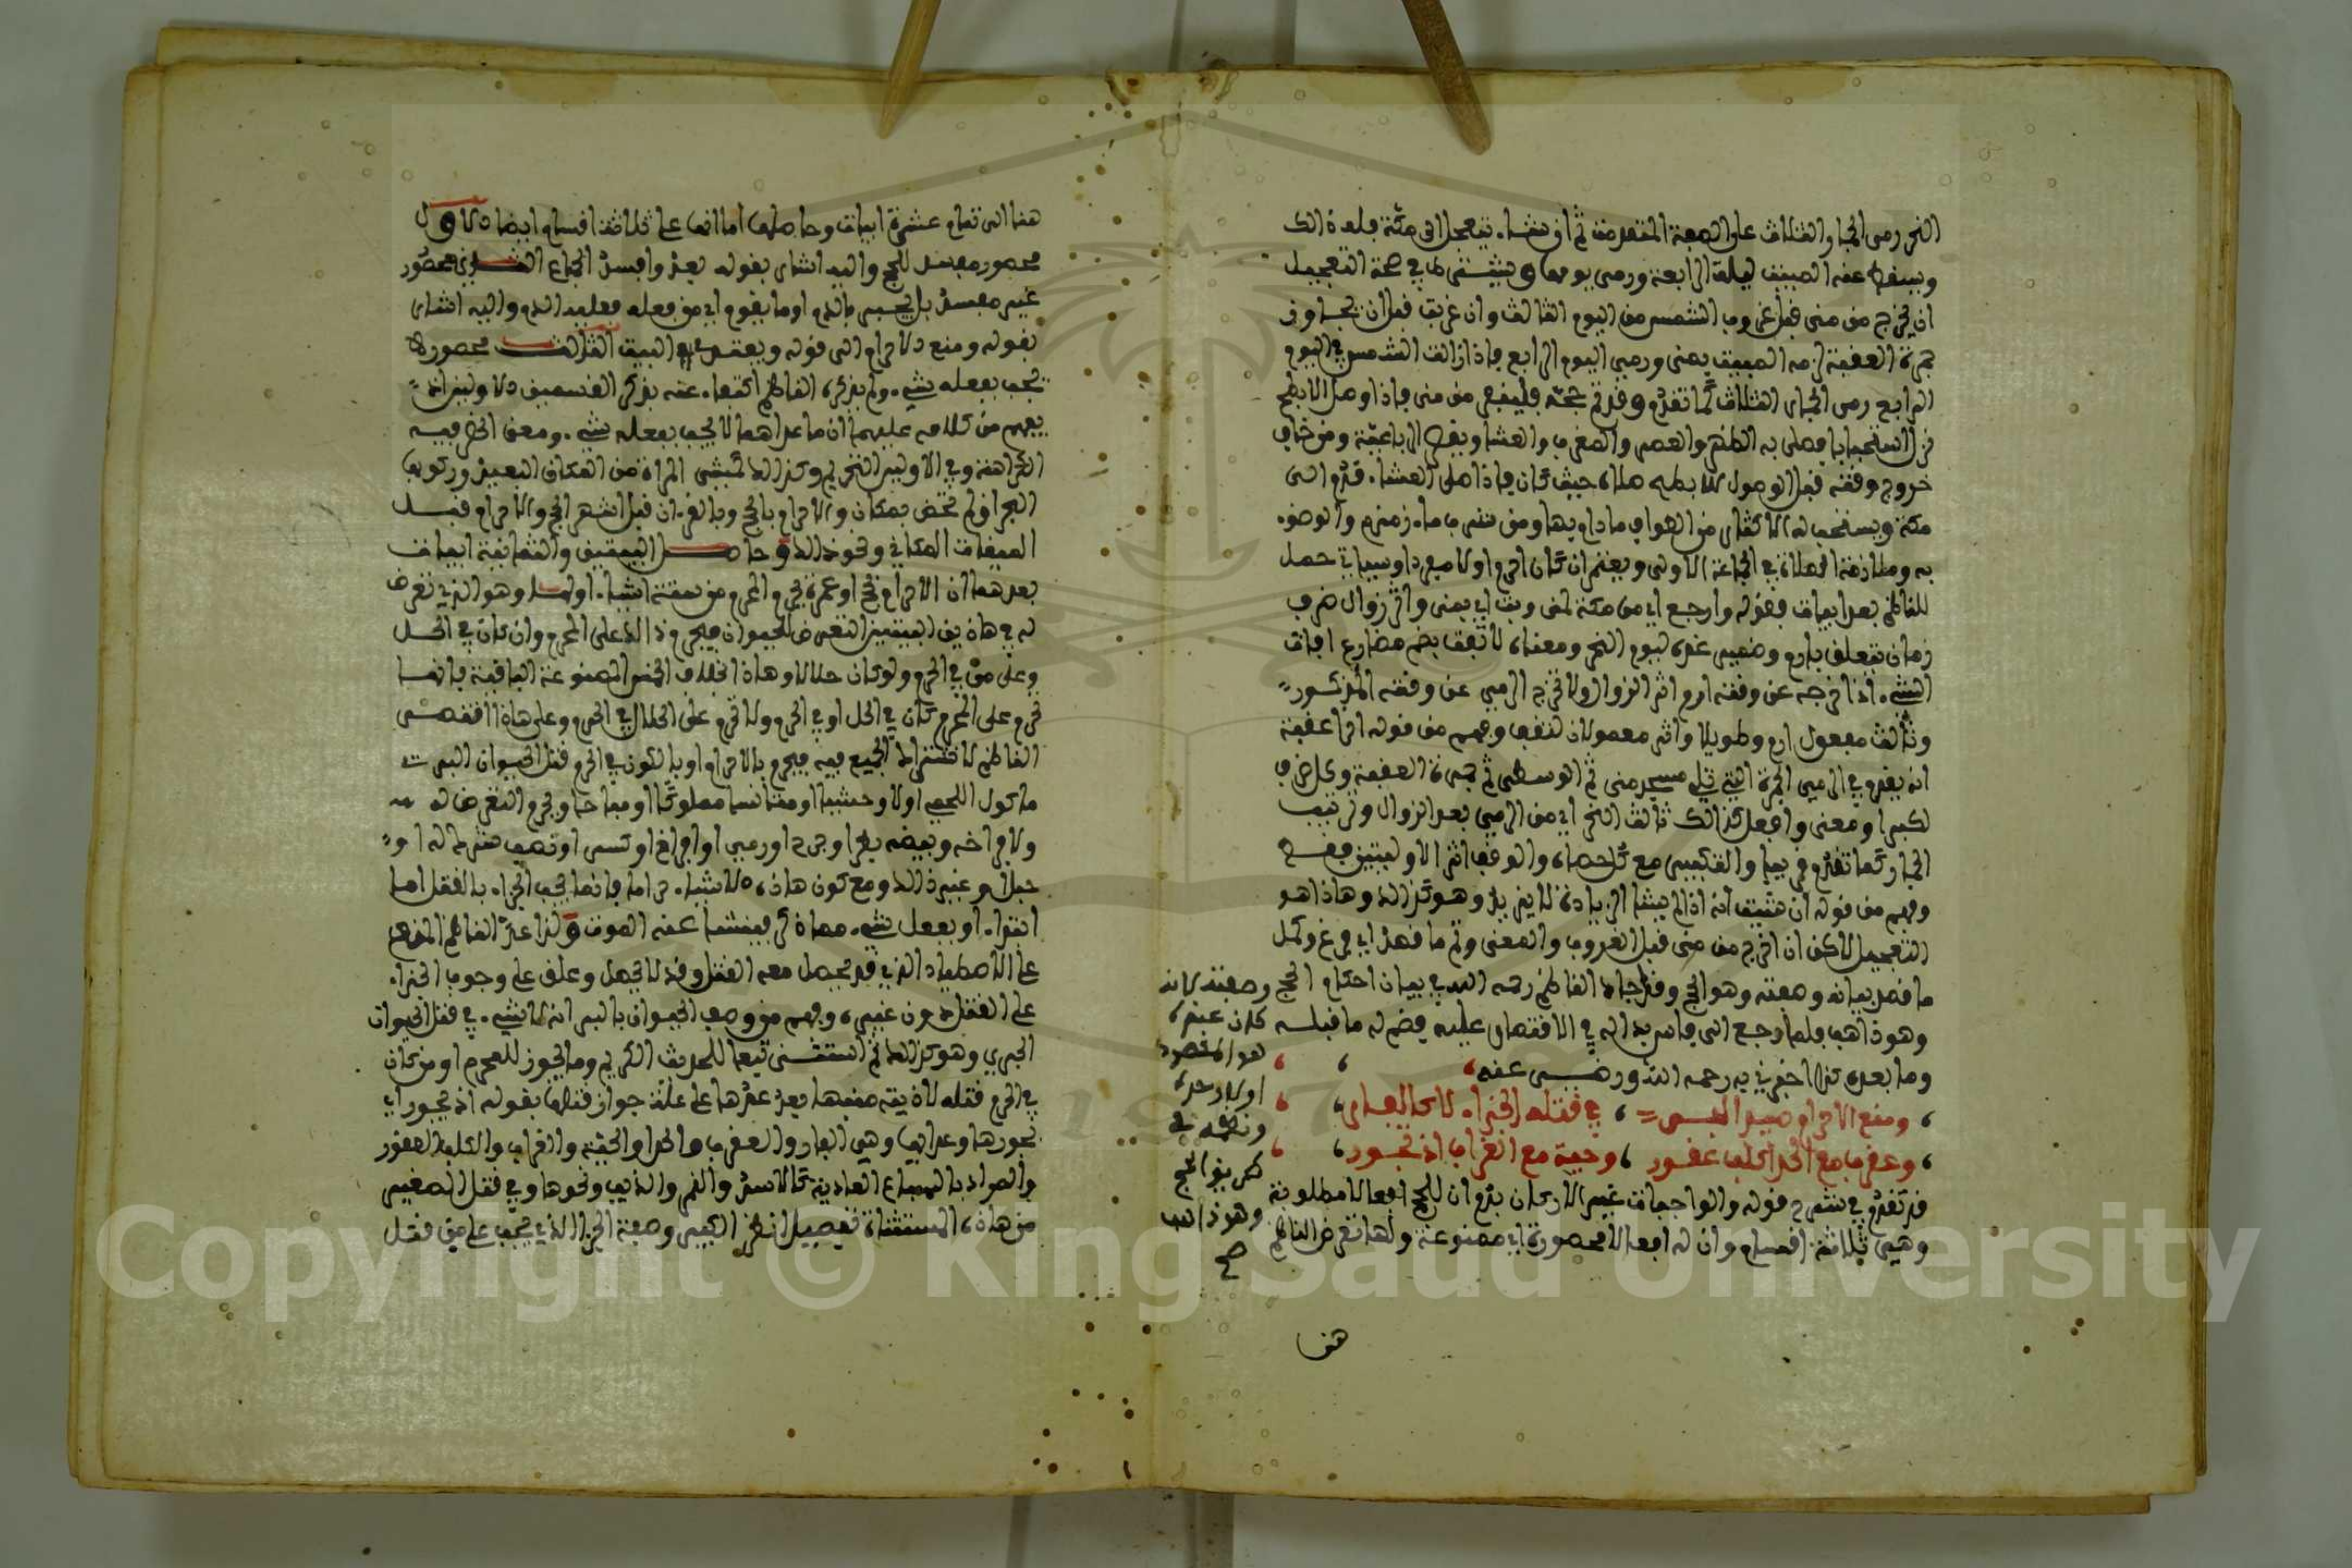 النحر رمى الجمار الثلاث على الصفة المتقدمة ثم ان شاء تعجل الى مكة فله ذلك
ويسقط عنه المبيت ليلة الرابعة ورمى يومها ويشترط في صحة التعجيل
ان يخرج من منى قبل غروب الشمس من اليوم الثالث وان غربت قبل ان يجاوز
جمرة العقبة لزمه المبيت بمنى ورمى اليوم الرابع فاذا زالت الشمس في اليوم
الرابع رمى الجمار الثلاث كما تقدم وقد تم حجه فلينفر من منى فاذا وصل الابطح
نزل استحبابا فصلى به الظهر والعصر والمغرب والعشا ويقصر الرباعية ومن خاف
خروج وقته قبل الوصول للابطح صلاه حيث كان فاذا صلى العشاء قدم الى
مكة ويستحب له الاكثار من الطواف ما دام بها ومن شرب ماء زمزم والوضوء
به وملازمة الصلاة في الجماعة الاولى ويعتمر ان كان احرم اولا مفردا وسياتي حمل
للناظم بعد ابيات فقوله وارجع اي من مكة لمنى وبت اي بمنى واثر زوال ظرف
زمان يتعلق بارم وضمير غده ليوم النحر ومعناه لا تفت بضم مضارع افات
الشيء اذا اخرجه عن وقته ارم اثر الزوال ولا تخرج الرمي عن وقته المذكور
وثالث مفعول ارم وطويلا واثر معمولان لتقف وفهم من قوله اخرا عقبة
انه يقدم في الرمي الجمرة التي تلي مسجد منى ثم الوسطى ثم جمرة العقبة وكل ظرف
لكبرا ومعنى وافعل كذلك ثالث النحر اي من الرمي بعد الزوال وترتيب
الجمار كما تقدم في بيا والتكبير مع كل حصاة والوقوف اثر الاوليين فقط
وفهم من قوله ان شئت انه اذا لم يشا الزيادة لا يزيد وهو كذلك وهاذا هو
التعجيل لاكن ان اخرج من منى قبل الغروب والمعنى وتم ما قصد اي فرغ وكمل
ما قصد بيانه وصفته وهو الحج وقد اجاد الناظم رحمه الله في بيان احكام الحج
وهو ذاهب فلما رجع الى فاس بدا له في الاقتصار عليه فضم له ما قبله
وما بعده كذا اخبرني به رحمه الله ورضي عنه
ومنع الاحرام صيد البر في قتله الجزاء لا كالفار
وعقرب مع الحدا كلب عقور وحية مع الغراب اذ تجور
قد تقدم في شرح قوله والواجبات غير الاركان بدم ان للحج افعالا مطلوبة
وهي ثلاثة اقسام وان له افعالا محصورة اي ممنوعة ولها تعرض الناظم
وصفته كانه
كان عنده
هو المقصود
اولا وحده
ونظمه في
طريق الحج
وهو ذاهب
صح
هنا
هنا الى تمام عشرة ابيات وحاصلها اما انها على ثلاثة اقسام ايضا الاول
محصور مفسد للحج واليه اشار بقوله بعد وافسد الجماع الثاني محصور
غير مفسد بل يجبر بالدم او ما يقوم اي من فعله فعليه الدم واليه اشار
بقوله ومنع الاحرام الى قوله ويعقد البيت الثالث محصور لا
يجب بفعله شيء ولم يذكره الناظم اكتفاء عنه بذكر القسمين الاولين اذ
يفهم من كلامه عليهما ان ما عداهما لا يجب بفعله شيء ومعنى الحظر فيه
الكراهة وفي الاولين التحريم وكذلك كمشي المراة من المكان البعيد وركوبها
البحر ان لم تختص بمكان والاحرام بالحج وبالقران قبل اشهر الحج والاحرام قبل
الميقات المكاني ونحو ذلك وحاصل البيتين والثمانية ابيات
بعدهما ان الاحرام بحج او عمرة يحرم المحرم من ستة اشياء اولها وهو الذي تعرض
له في هاذين البيتين التعرض للحيوان فيحرم ذلك على المحرم وان كان في الحل
وعلى من في الحرم ولو كان حلالا وهاذا بخلاف الخمس الممنوعة الباقية فانها
تحرم على المحرم كان في الحل او في الحرم ولا تحرم على الحلال في الحرم وعلى هاذا اقتصر
الناظم لاشتراط الجميع فيه فيحرم بالاحرام او بالكون في الحرم قتل الحيوان البري
ماكول اللحم او لا وحشيا او متانسا مملوكا او مباحا ويحرم التعرض له
ولافراخه وبيضه بطرد او جرح او رمي او افزاع او كسر او نصب شرك له او
حبل او غير ذلك ومع كون هاذه الاشياء حراما فانما يجب الجزاء بالقتل اما
ابتداء او بفعل شيء مما ذكر فينشا عنه الموت ولذا عبر الناظم بالمنع
على الاصطياد الذي قد يحصل معه القتل وقد لا يحصل وعلق على وجوب الجزاء
على القتل دون غيره وفهم من وصف الحيوان بالبر انه لا شيء في قتل الحيوان
البحري وهو كذلك ثم استثنى تبعا للحديث الكريم وما يجوز للمحرم او من كان
في الحرم قتله لاذيته منبها بعد عدها على علة جواز قتلها بقوله اذ تجور اي
بجورها وعدائها وهي الفار والعقرب والحدا والحية والغراب والكلب العقور
والمراد بالسباع العادية كالاسد والنمر والذيب ونحوها وفي قتل الصغير
من هاذه المستثناة تفصيل انظر الكبير وصفة الجزاء الذي يجب على من قتل
Copyright © King Saud University